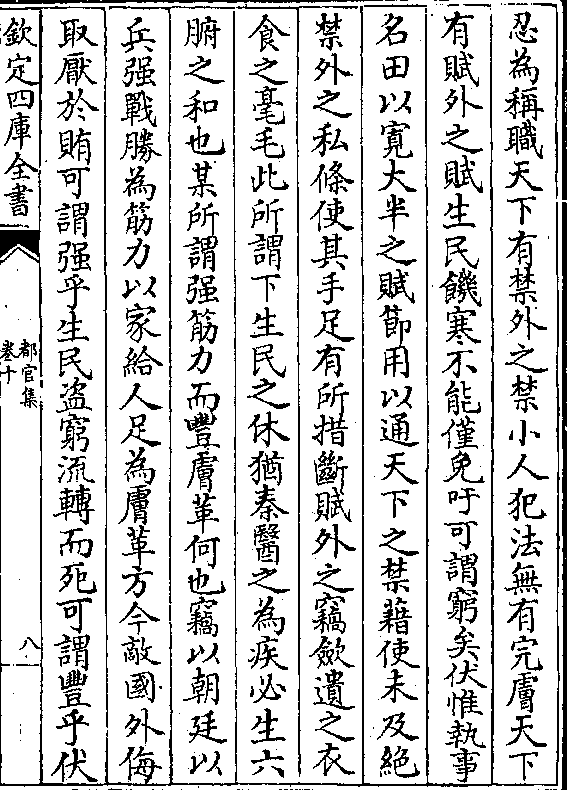 忍為稱職天下有禁外之禁小人犯法無有完膚天下
有賦外之賦生民饑寒不能僅免吁可謂窮矣伏惟執事
名田以寛大半之賦節用以通天下之禁藉使未及絶
禁外之私條使其手足有所措斷賦外之竊歛遺之衣
食之毫毛此所謂下生民之休猶秦醫之為疾必生六
腑之和也某所謂强筋力而豐膚革何也竊以朝廷以
兵强戰勝為筋力以家給人足為膚革方今敵國外侮
取厭於賄可謂强乎生民盗窮流轉而死可謂豐乎伏
欽定四庫全書
都官集
卷十
八